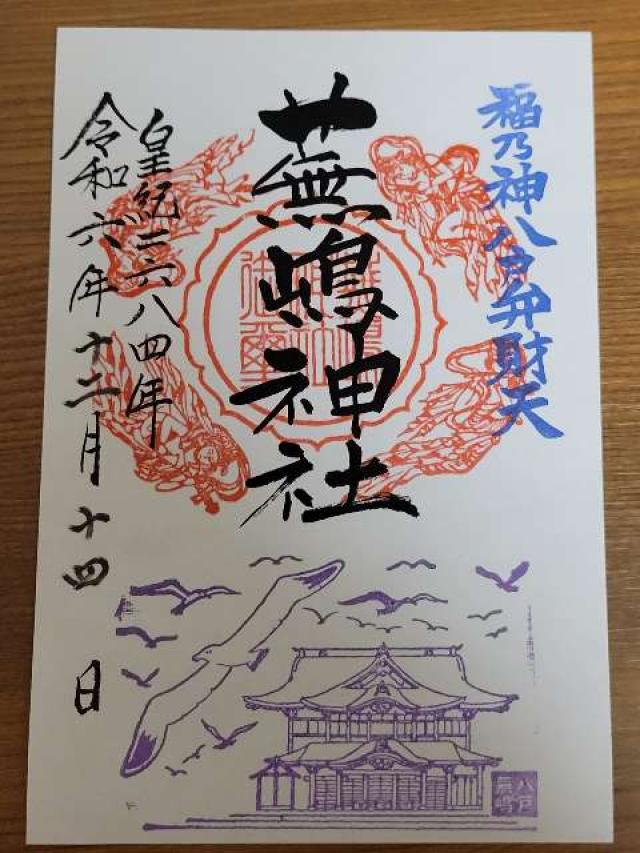 稲乃神八戸弁財天
蕪嶋神社
皇紀二六八四年
令和六年十二月十四日
八戸
蕪嶋